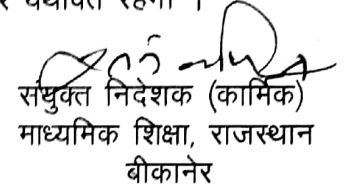 यथावत रहेगा ।
संयुक्त निदेशक (कार्मिक)
माध्यमिक शिक्षा, राजस्थान
बीकानेर